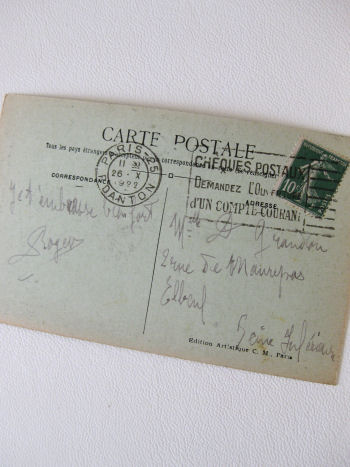 CARTE POSTALE
Tous les pays étrangers correspondance
CORRESPONDANCE
ADRESSE
PARIS-25
11 30
26-X
1922
R. DANTON
CHÈQUES POSTAUX
DEMANDEZ L'OUV
D'UN COMPTE COURANT
10c
Je t'embrasse bien fort
Roger
Mlle D. Grandon
2 rue de Maurepas
Elbeuf
Seine Inférieure
Edition Artistique C. M., Paris